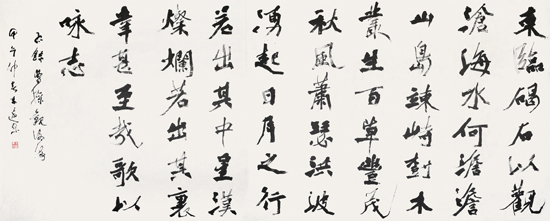 東臨碣石以觀
滄海水何澹澹
山島竦峙樹木
叢生百草豐茂
秋風蕭瑟洪波
湧起日月之行
若出其中星漢
燦爛若出其裏
幸甚至哉歌以
咏志
右錄曹操觀滄海
甲午仲春